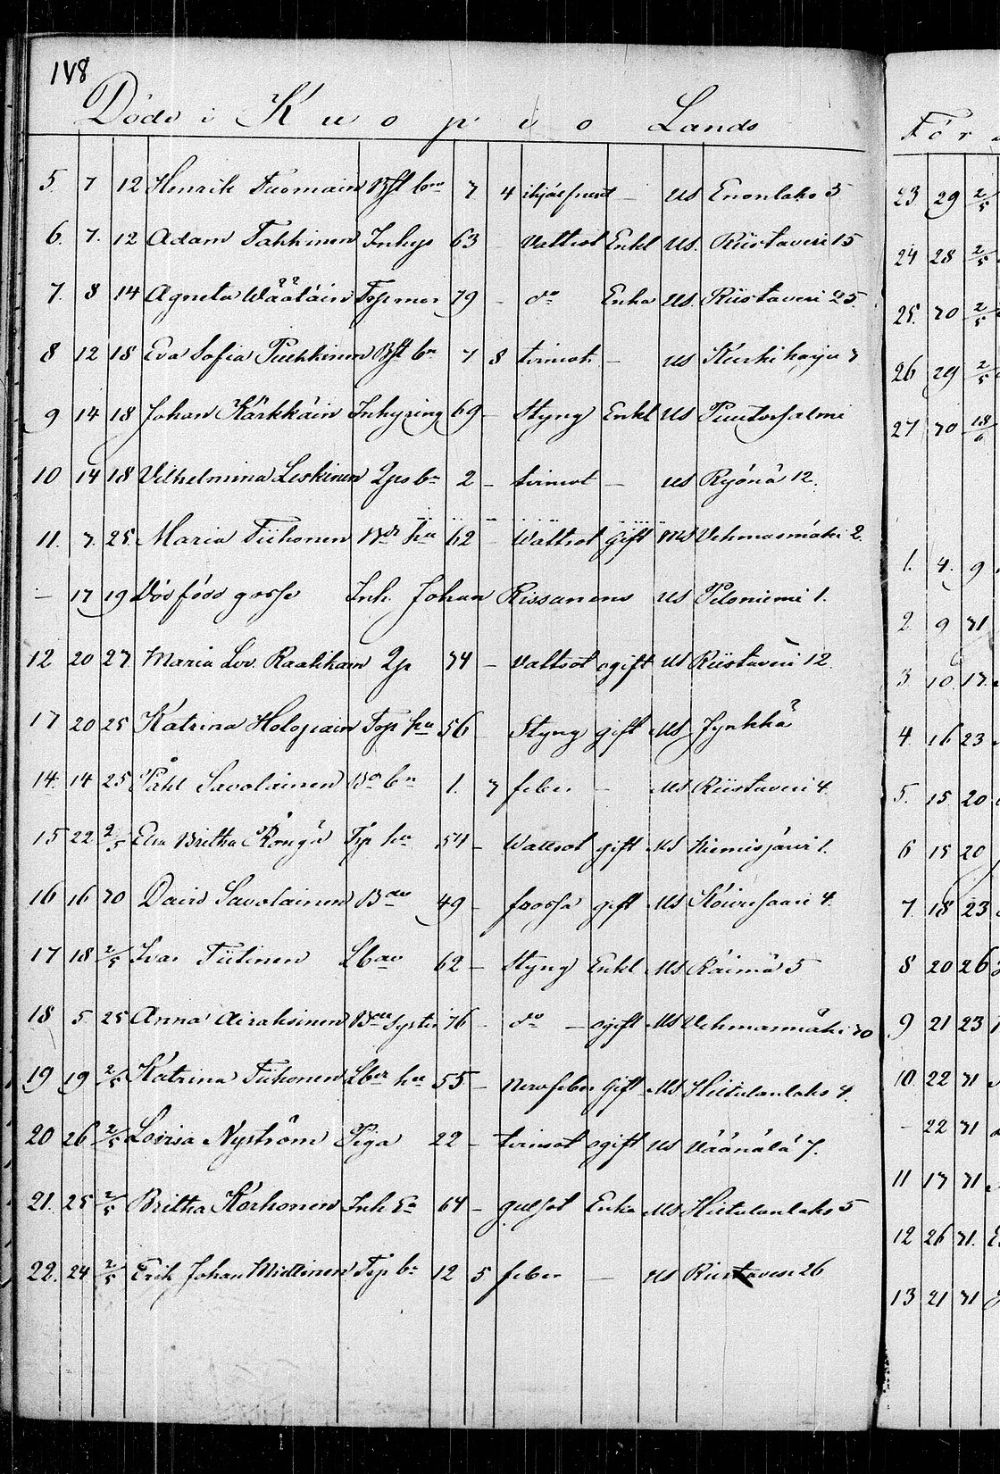 148
Döde i Kuopio Lands
5. 7 12 Henrik Tuomain Bst bn 7. 4 US Enonlaks 5
6. 7. 12 Adam Takkinen Inhys 63 – Vattsot Enkl US. Riistavesi 15
7. 8 14 Agneta Wäätäin Torpmor 79 – do Enka US. Riistavesi 25.
8 12 18 Eva Sofia Puhkinen Bst bn 7 8 tvinsot – US Kurkiharju 7
9 14 18 Johan Kärkkäin Inhysing 69 – Styng Enkl US Puutosalmi
10 14 18 Vilhelmina Leskinen bn 2 – tvinsot – US Ryönä 12.
11. 7. 25. Maria Tiihonen hu 62 – Wattsot gift US Vehmasmäki 2.
– 17 19 Dödföds gosse Inh. Johan Rissanens US Piloniemi 1.
12 20 27 Maria Lov. Raatikain 74 – Vattsot ogift US Riistavesi 12.
13 20 25 Katrina Holopain Torp hu 56 Styng gift US Jynkkä
14. 14 25 Påhl Savolainen bn 1. 7 feber – US Riistavesi 4.
15 22 2/5 Eva Britha hu 54 – Wattsot gift US Niemisjärvi 1.
16 16 30 David Savolainen 49 – frossa gift US Koivusaari 4.
17 18 2/5 Ivar Tiilinen 62 – Styng Enkl US Räimä 5
18 5. 25 Anna Airaksinen syster 76 – do – ogift US Vehmasmäki 30
19 19 2/5 Katrina Tiihonen hu 55 – Nervfeber Gift US Hiltulanlaks 4.
20 26 2/5 Lovisa Nyström Piga 22 – tvinsot ogift US Väänälä 7.
21. 25 2/5 Britha Korhonen Inh Ea 64 – gulsot Enka US Hiltulanlaks 5
22. 24 2/5 Erik Johan Miettinen Torp bn 12 5 feber – US Riistavesi 26
För
23 29 2/5
24 28 2/5
25. 30 2/5
26 29 2/5
27 30 18/6
1. 4. 9
2 9 31
3 10 17.
4. 16 23
5. 15 20
6 15 20
7. 18 23
8 20 26
9 21 23
10. 22 31
– 22 31
11 17 31
12 26 31.
13 21 31